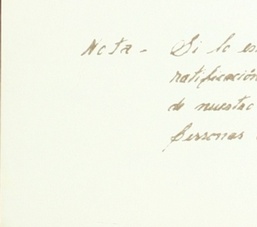 Nota - Si lo es
ratificación
de nuestac
personas